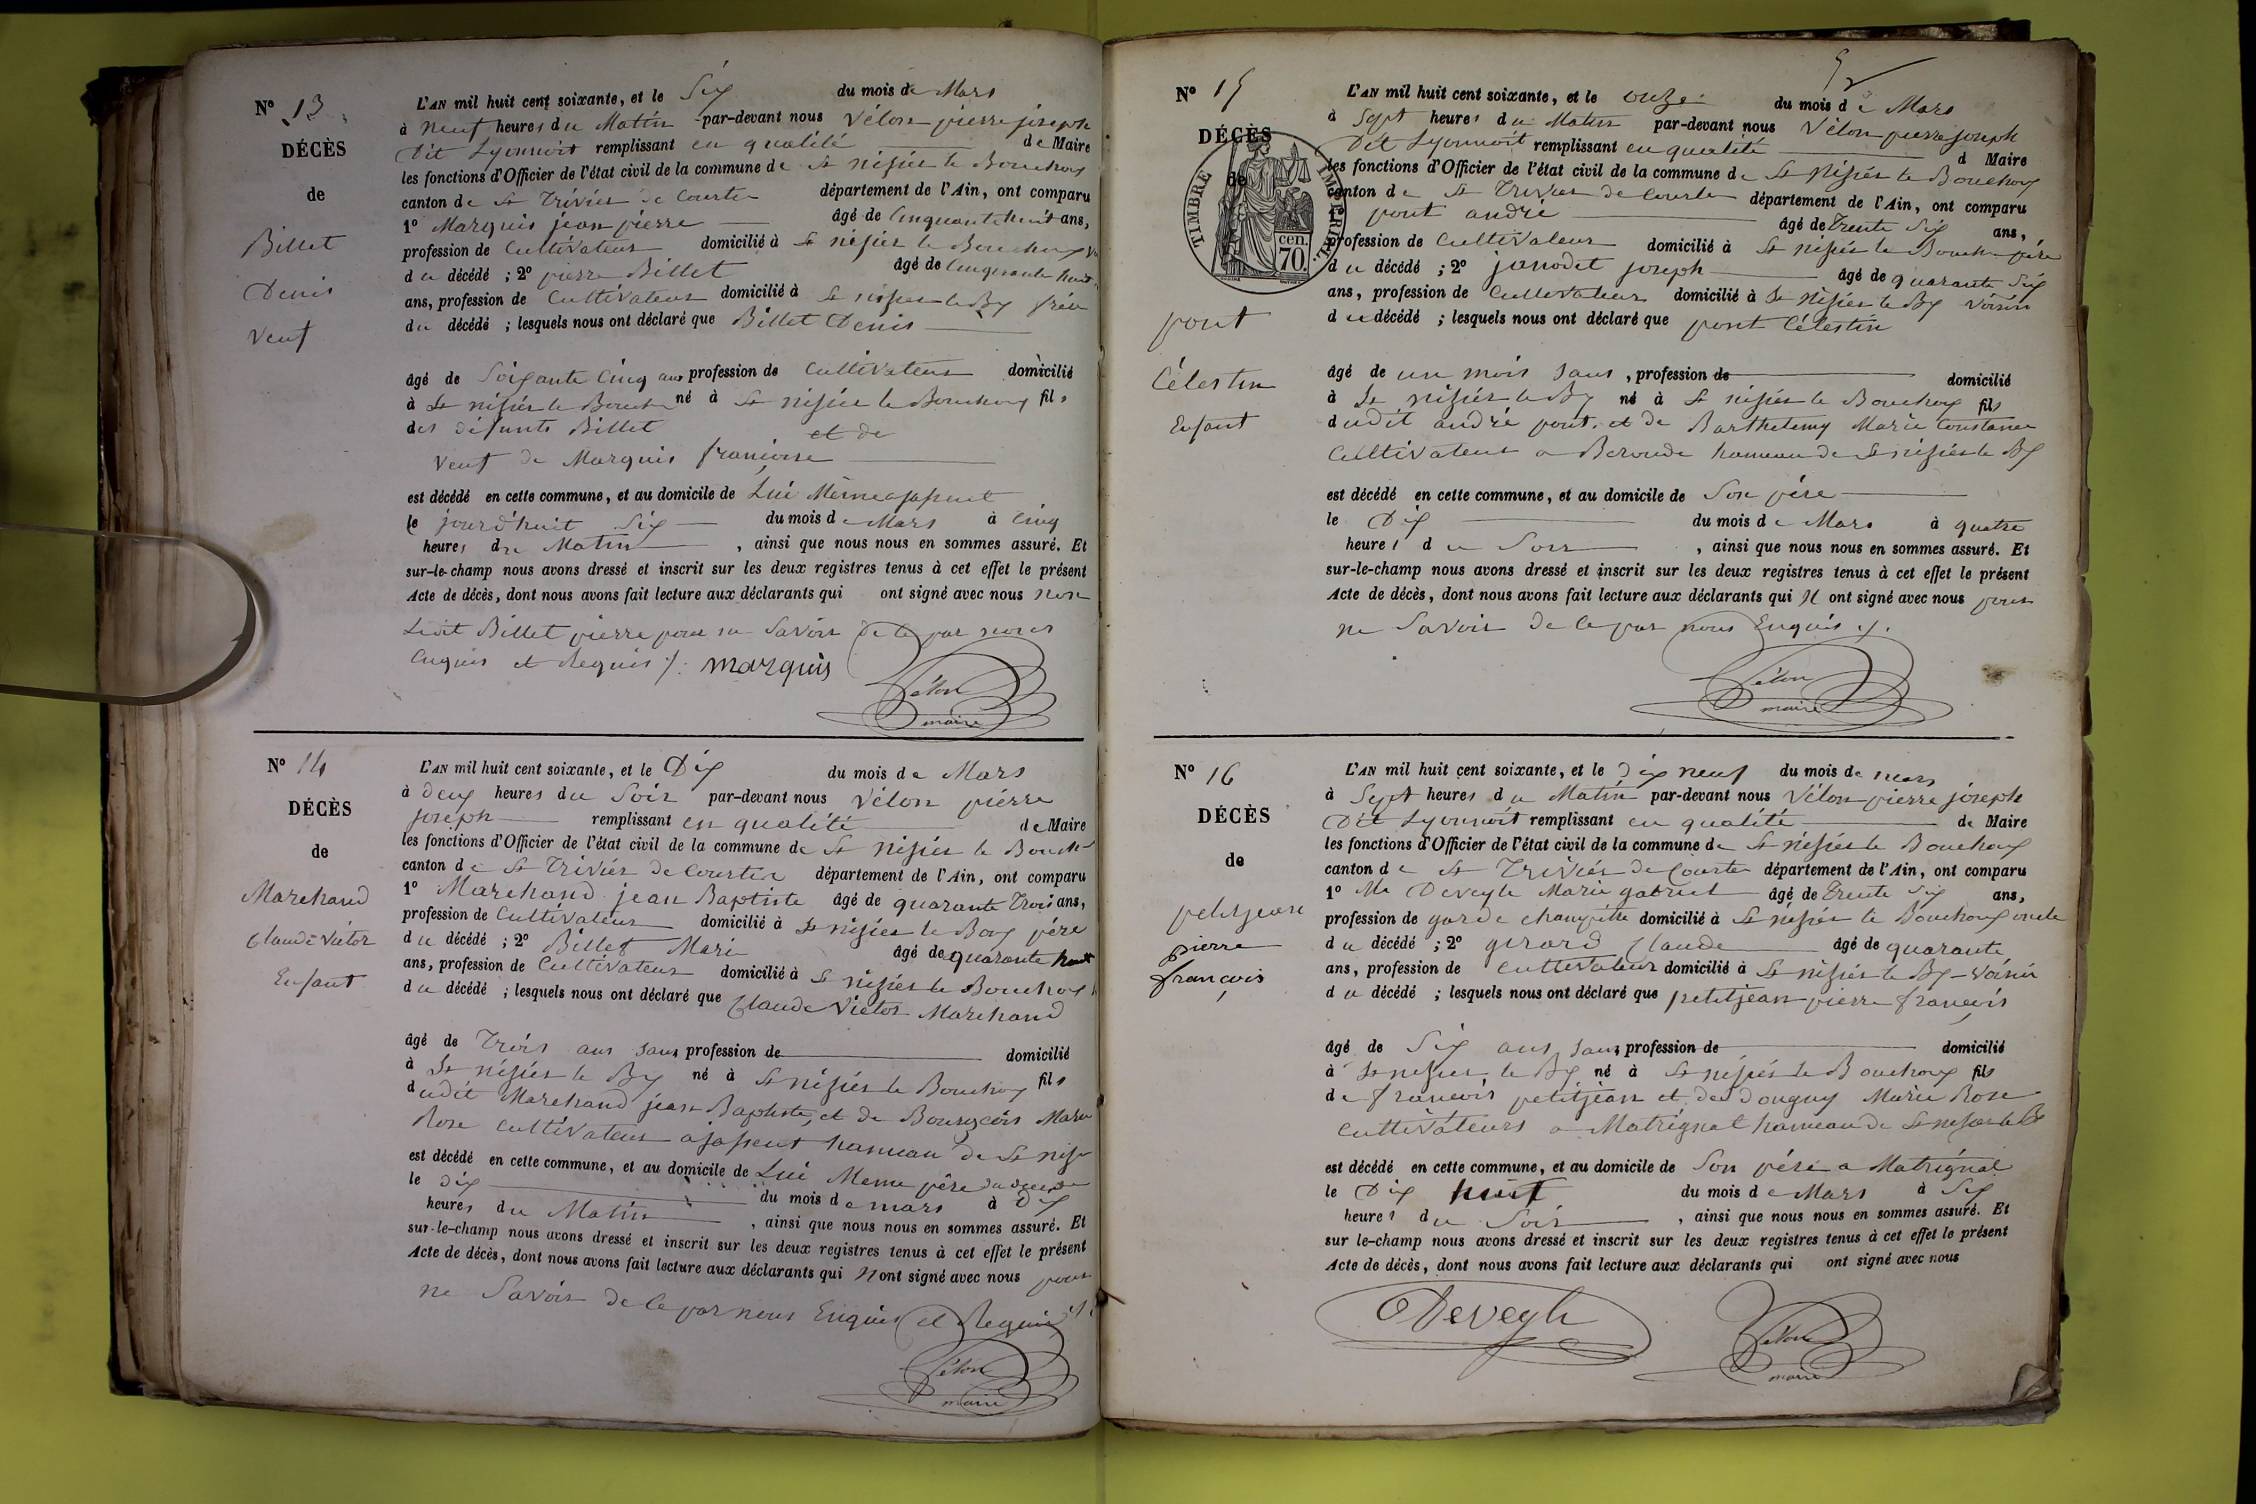 N° 13
DÉCÈS
de
Billet
Denis
Veuf
L'AN mil huit cent soixante, et le Six du mois de Mars
à neuf heures du Matin par-devant nous Vélon pierre joseph
Dit Lyonnoit remplissant en qualité de Maire
les fonctions d'Officier de l'état civil de la commune de St nisiér le Bouchoux
canton de St Triviér de Courte département de l'Ain, ont comparu
1° Marquis jean pierre âgé de Cinquante huit ans,
profession de Cultivateur domicilié à St nisiér le Bouchoux
du décédé ; 2° pierre Billet âgé de Cinquante huit
ans, profession de Cultivateur domicilié à St nisier le Bx frére
du décédé ; lesquels nous ont déclaré que Billet Denis
âgé de Soixante Cinq ans profession de Cultivateur domicilié
à St nisiér le Bouch né à St nisiér le Bouchoux fils
des défunts Billet et de
Veuf de Marquis francoise
est décédé en cette commune, et au domicile de Lui Même
le jourd'huit Six du mois de Mars à Cinq
heures du Matin , ainsi que nous nous en sommes assuré. Et
sur-le-champ nous avons dressé et inscrit sur les deux registres tenus à cet effet le présent
Acte de décès, dont nous avons fait lecture aux déclarants qui ont signé avec nous non
Ledit Billet pierre pour ne Savoir de ce par nous
Enquis et Requis ./. marquis
Vélon
maire
N° 14
DÉCÈS
de
Marchand
Claude Victor
Enfant
L'AN mil huit cent soixante, et le Dix du mois de Mars
à deux heures du Soir par-devant nous Vélon piérre
joseph remplissant en qualité de Maire
les fonctions d'Officier de l'état civil de la commune de St nisiér le Bouch
canton de St Triviér de Courte département de l'Ain, ont comparu
1° Marchand jean Baptiste âgé de quarante Trois ans,
profession de Cultivateur domicilié à St nisiér le Boux pére
du décédé ; 2° Billet Marie âgé de quarante huit
ans, profession de Cultivateur domicilié à St nisiér le Bouchoux
du décédé ; lesquels nous ont déclaré que Claude Victor Marchand
âgé de Trois ans sans profession de domicilié
à St nisiér le Bx né à St nisiér le Bouchoux fils
dudit Marchand jean Baptiste, et de Bourgeois Marie
Rose Cultivateur a jassent hameau de St nisi
est décédé en cette commune, et au domicile de Lui Meme pére du décédé
le dix du mois de mars à Dix
heures du Matin , ainsi que nous nous en sommes assuré. Et
sur-le-champ nous avons dressé et inscrit sur les deux registres tenus à cet effet le présent
Acte de décès, dont nous avons fait lecture aux déclarants qui N ont signé avec nous pour
ne Savoir de ce par nous Enquis et Requis
Vélon
maire
N° 15
DÉCÈS
de
TIMBRE IMPÉRIAL
cen.
70.
pont
Célestin
Enfant
L'AN mil huit cent soixante, et le onze du mois de Mars
à Sept heures du Matin par-devant nous Vélon pierre joseph
Dit Lyonnoit remplissant en qualité d Maire
les fonctions d'Officier de l'état civil de la commune de St Nisiér le Bouchoux
canton de St Triviér de Courte département de l'Ain, ont comparu
1° pont andré âgé de Trente Six ans,
profession de Cultivateur domicilié à St nisiér le Bouch pére
du décédé ; 2° janodet joseph âgé de quarante Six
ans, profession de Cultivateur domicilié à St Nisiér le Bx voisin
du décédé ; lesquels nous ont déclaré que pont Célestin
âgé de un mois sans , profession de domicilié
à St nisiér le Bx né à St nisiér le Bouchoux fils
dudit andré pont. et de Barthelemy Marie Constance
Cultivateur a Beroude hameau de St nisiér le Bx
est décédé en cette commune, et au domicile de Son pére
le Dix du mois de Mars à quatre
heures du Soir , ainsi que nous nous en sommes assuré. Et
sur-le-champ nous avons dressé et inscrit sur les deux registres tenus à cet effet le présent
Acte de décès, dont nous avons fait lecture aux déclarants qui N ont signé avec nous pour
ne Savoir de ce par nous Enquis ./.
Vélon
maire
N° 16
DÉCÈS
de
petitjean
pierre
françois
L'AN mil huit cent soixante, et le Dix neuf du mois de mars
à Sept heures du Matin par-devant nous Vélon pierre joseph
Dit Lyonnoit remplissant en qualité de Maire
les fonctions d'Officier de l'état civil de la commune de St nisiér le Bouchoux
canton de St Triviér de Courte département de l'Ain, ont comparu
1° Mr Deveyle Marie gabriel âgé de Trente Six ans,
profession de garde champêtre domicilié à St nisiér le Bouchoux oncle
du décédé ; 2° girard Claude âgé de quarante
ans, profession de Cultivateur domicilié à St nisiér le Bx Voisin
du décédé ; lesquels nous ont déclaré que petitjean pierre francois
âgé de Six ans sans profession de domicilié
à St nisier le Bx né à St nisiér le Bouchoux fils
de francois petitjean et de Dougny Marie Rose
Cultivateurs a Matrignat hameau de St nisier le B
est décédé en cette commune, et au domicile de Son pére a Matrignat
le Dix huit du mois de Mars à Six
heures du Soir , ainsi que nous nous en sommes assuré. Et
sur le-champ nous avons dressé et inscrit sur les deux registres tenus à cet effet le présent
Acte de décès, dont nous avons fait lecture aux déclarants qui ont signé avec nous
Deveyle
Vélon
maire